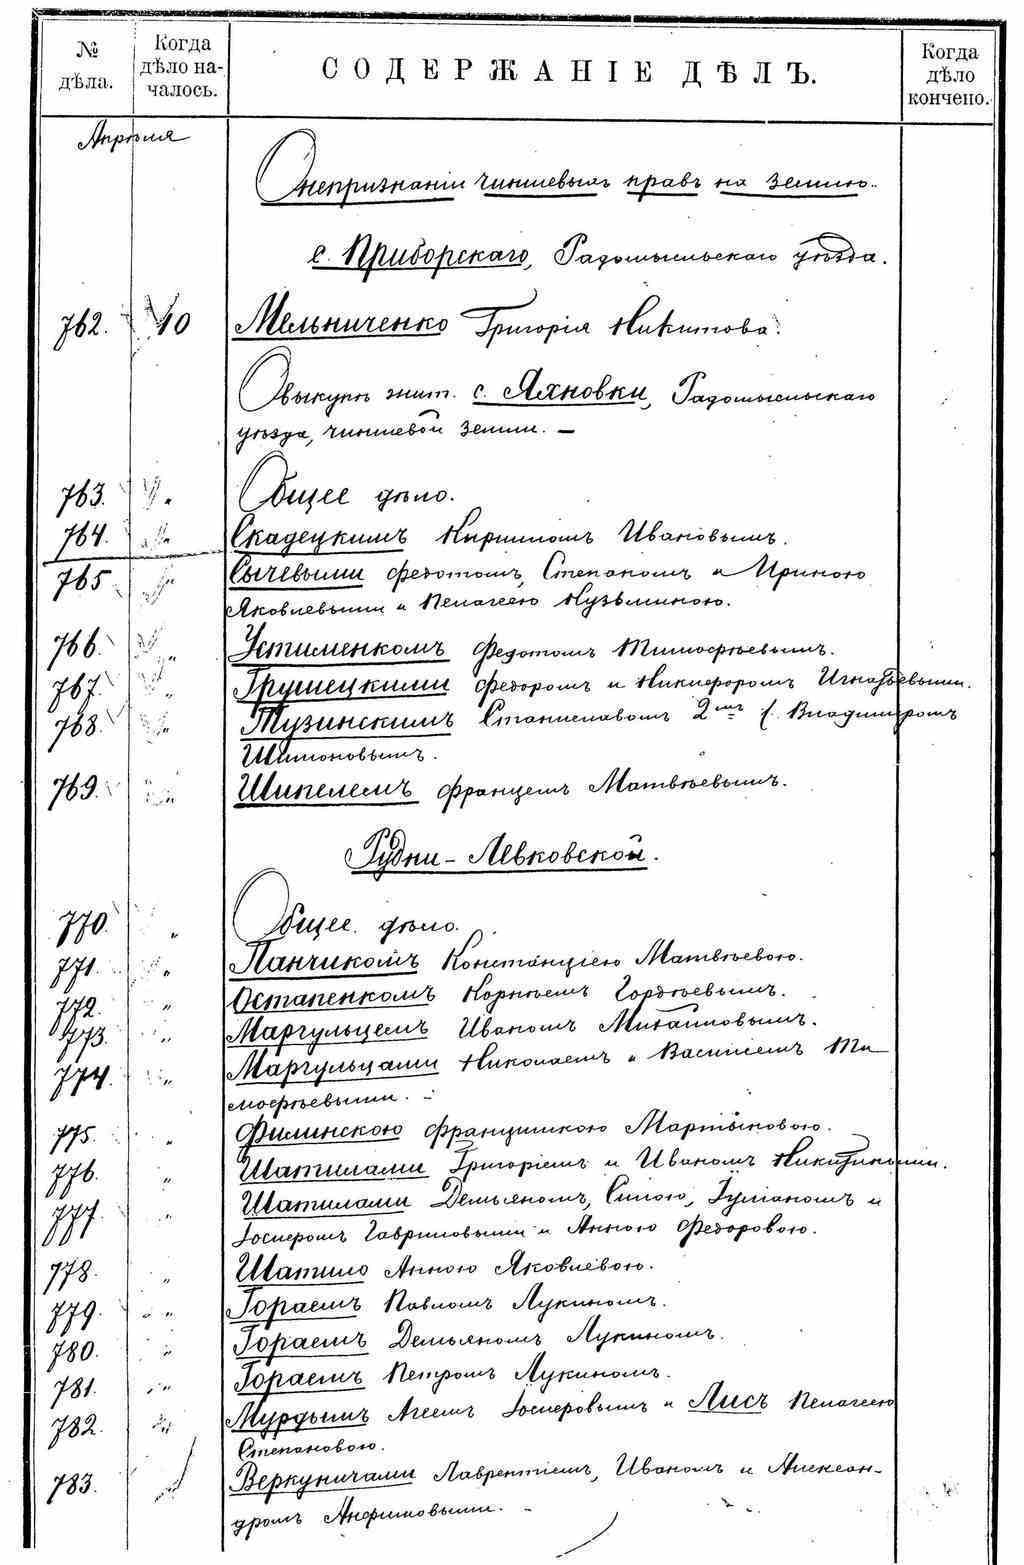 № дѣла. Когда дѣло началось. СОДЕРЖАНІЕ ДѢЛЪ. Когда дѣло кончено.
Апрѣля
О непризнаніи чиншевыхъ правъ на землю.
с. Приборскаго, Радомысльскаго уѣзда.
762. 10 Мельниченко Григорія Никитова.
О выкупѣ жит. с. Яхновки, Радомысльскаго
уѣзда, чиншевой земли. —
763. " Общее дѣло.
764. " Скадецкимъ Кирилломъ Ивановымъ.
765 " Сычевыми Федотомъ, Степаномъ и Ириною
Яковлевыми и Пелагеею Кузьминою.
766. " Устименкомъ Федотомъ Тимофѣевымъ.
767. " Грушецкими Федоромъ и Никифоромъ Игнатьевыми.
768. " Тузинскимъ Станиславомъ 2мъ Владимиромъ
Шимоновымъ.
769. " Шипелемъ Францемъ Матвѣевымъ.
Рудни-Левковской.
770. " Общее дѣло.
771. " Панчикомъ Констанціею Матвѣевою.
772. " Остапенкомъ Корнѣемъ Гордѣевымъ.
773. " Маргульцемъ Иваномъ Михайловымъ.
774. " Маргульцами Николаемъ и Василіемъ Ти
мофѣевыми.
775. " Филинскою Францишкою Мартыновою.
776. " Шатилами Григоріемъ и Иваномъ Никитиными.
777. " Шатилами Демьяномъ, Силою, Іуліаномъ и
Іосифомъ Гавриловыми и Анною Федоровою.
778. " Шатило Анною Яковлевою.
779. " Гораемъ Павломъ Лукиномъ.
780. " Гораемъ Демьяномъ Лукиномъ.
781. " Гораемъ Петромъ Лукиномъ.
782. " Мурдымъ Агеемъ Іосифовымъ и Лисъ Пелагеею
Степановою.
783. " Веркуничами Лаврентіемъ, Иваномъ и Алексан-
дромъ Анфимовыми.